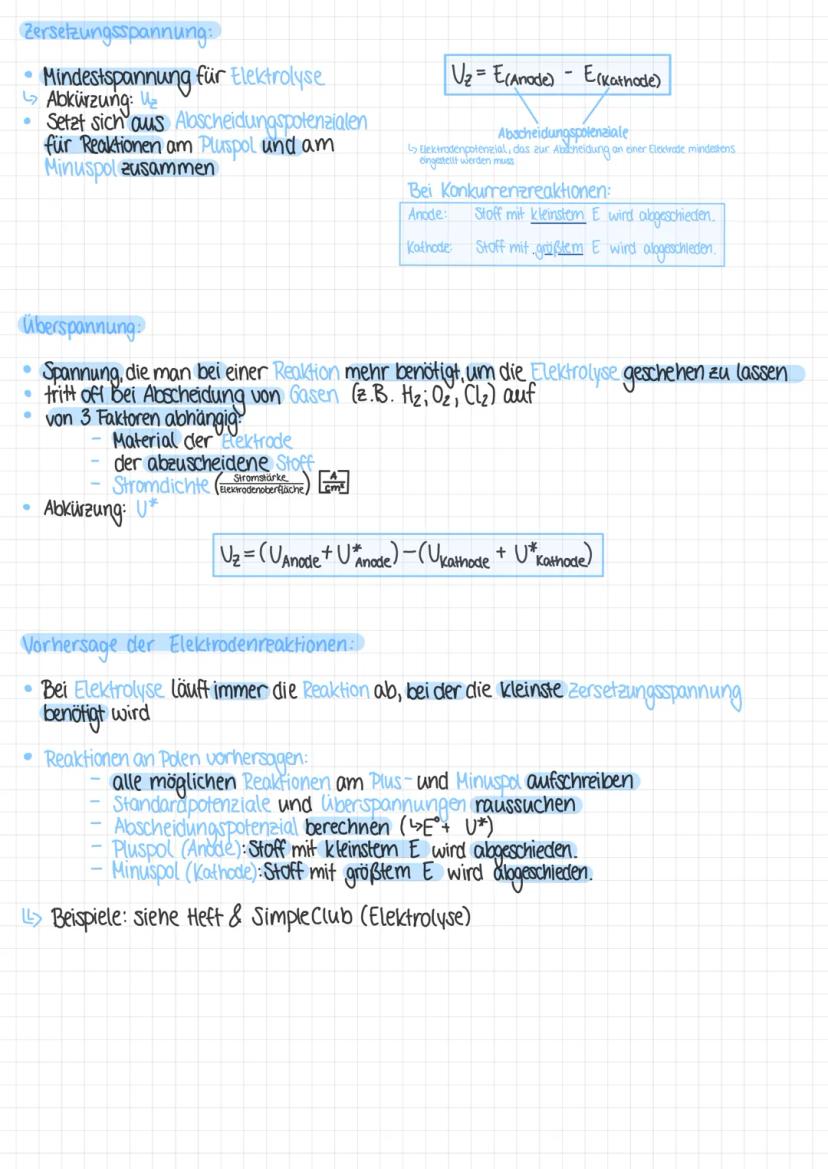 Zersetzungsspannung:
• Mindestspannung für Elektrolyse
↳ Abkürzung: Uz
• Setzt sich aus Abscheidungspotenzialen
für Reaktionen am Pluspol und am
Minuspol zusammen
Uz = E(Anode) - E(Kathode)
Abscheidungspotenziale
↳ Elektrodenpotenzial, das zur Abscheidung an einer Elektrode mindestens
eingestellt werden muss
Bei Konkurrenzreaktionen:
Anode: Stoff mit kleinstem E wird abgeschieden.
Kathode: Stoff mit größtem E wird abgeschieden.
Überspannung:
• Spannung, die man bei einer Reaktion mehr benötigt, um die Elektrolyse geschehen zu lassen
• tritt oft bei Abscheidung von Gasen (z.B. H₂; O₂, Cl₂) auf
• von 3 Faktoren abhängig:
- Material der Elektrode
- der abzuscheidene Stoff
- Stromdichte (Stromstärke / Elektrodenoberfläche) [A / cm²]
• Abkürzung: U*
Uz = (UAnode + U*Anode) - (UKathode + U*Kathode)
Vorhersage der Elektrodenreaktionen:
• Bei Elektrolyse läuft immer die Reaktion ab, bei der die kleinste Zersetzungsspannung
benötigt wird
• Reaktionen an Polen vorhersagen:
- alle möglichen Reaktionen am Plus- und Minuspol aufschreiben
- Standardpotenziale und Überspannungen raussuchen
- Abscheidungspotenzial berechnen (↳E°+ U*)
- Pluspol (Anode): Stoff mit kleinstem E wird abgeschieden.
- Minuspol (Kathode): Stoff mit größtem E wird abgeschieden.
↳ Beispiele: siehe Heft & SimpleClub (Elektrolyse)